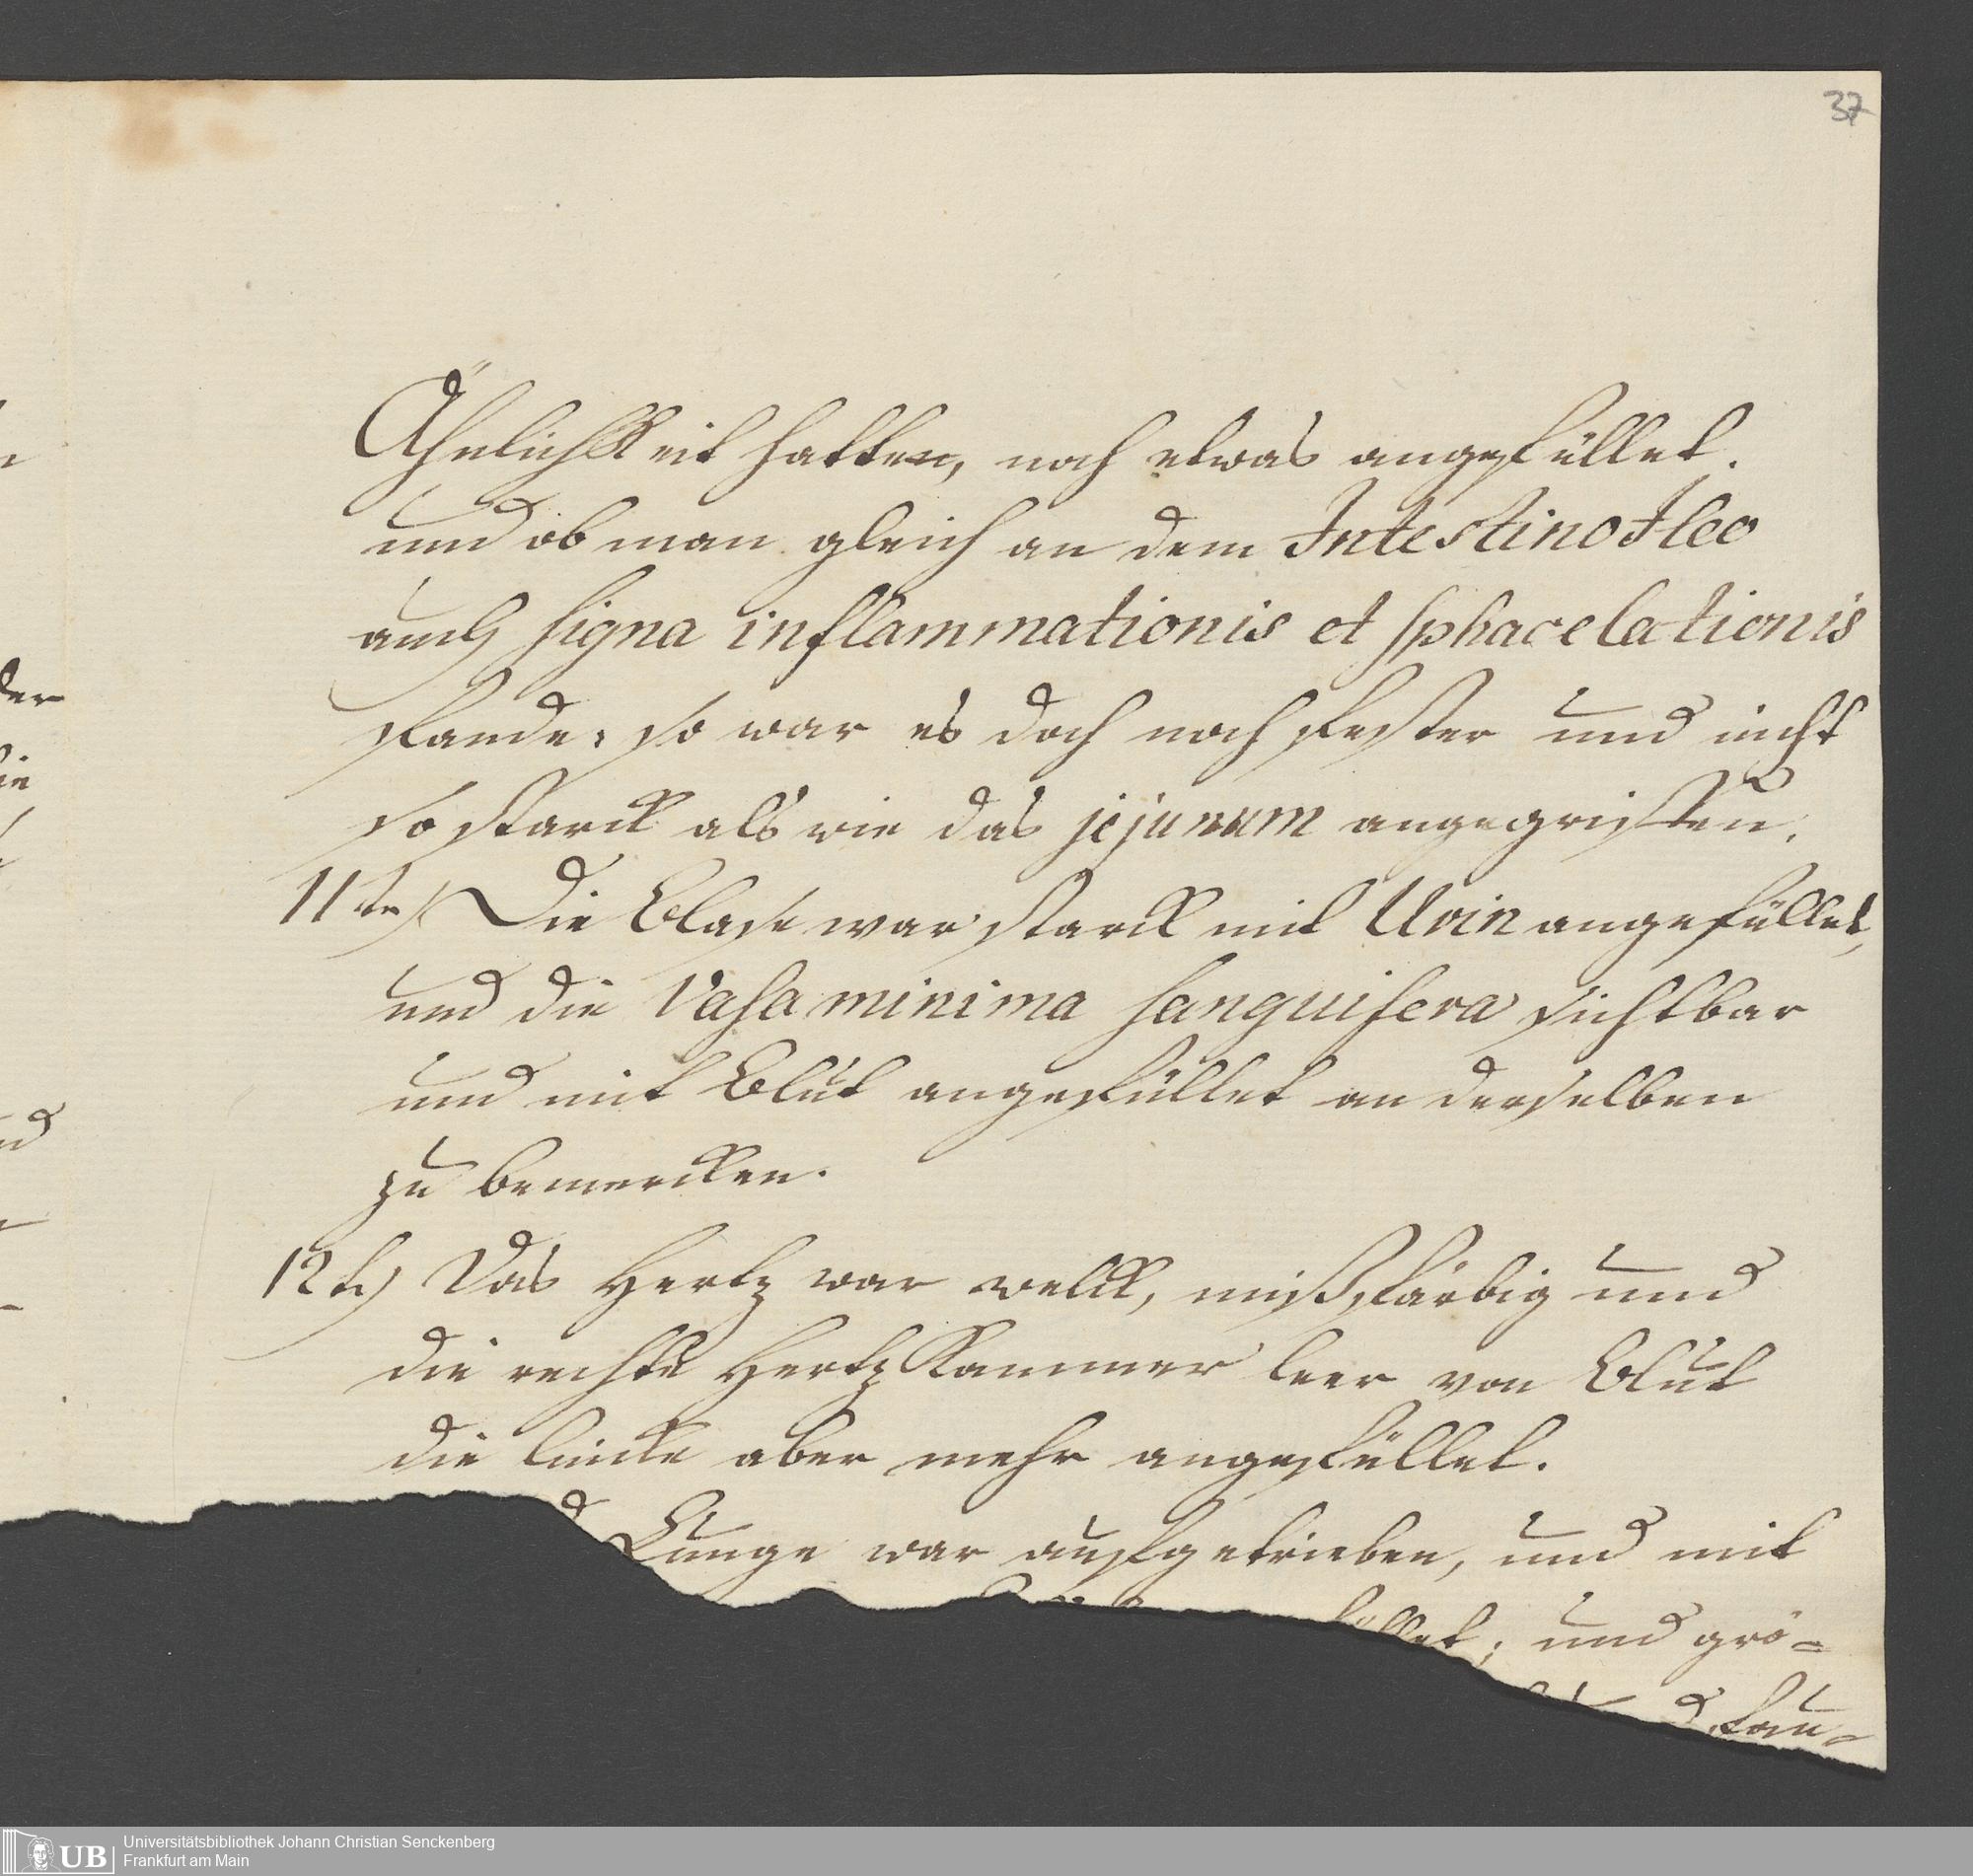 37
Ähnlichkeit hatten, noch etwas angefüllet.
und ob man gleich an dem Intestino Ileo
auch signa inflammationis et sphacelationis
fande, so war es doch noch fester und nicht
so starck als wie das jejunum angegriffen.
11te) Die Blase war starck mit Urin angefüllet,
und die Vasa minima sanguifera sichtbar
und mit Blut angefüllet an derselben
zu bemercken.
12te) Das Hertz war welck, mißfärbig und
die rechte Hertz Kammer leer von Blut
die lincke aber mehr angefüllet.
Lunge war aufgetrieben, und mit
füllet; und grö=
fau=
der
ie
nd
UB
Universitätsbibliothek Johann Christian Senckenberg
Frankfurt am Main